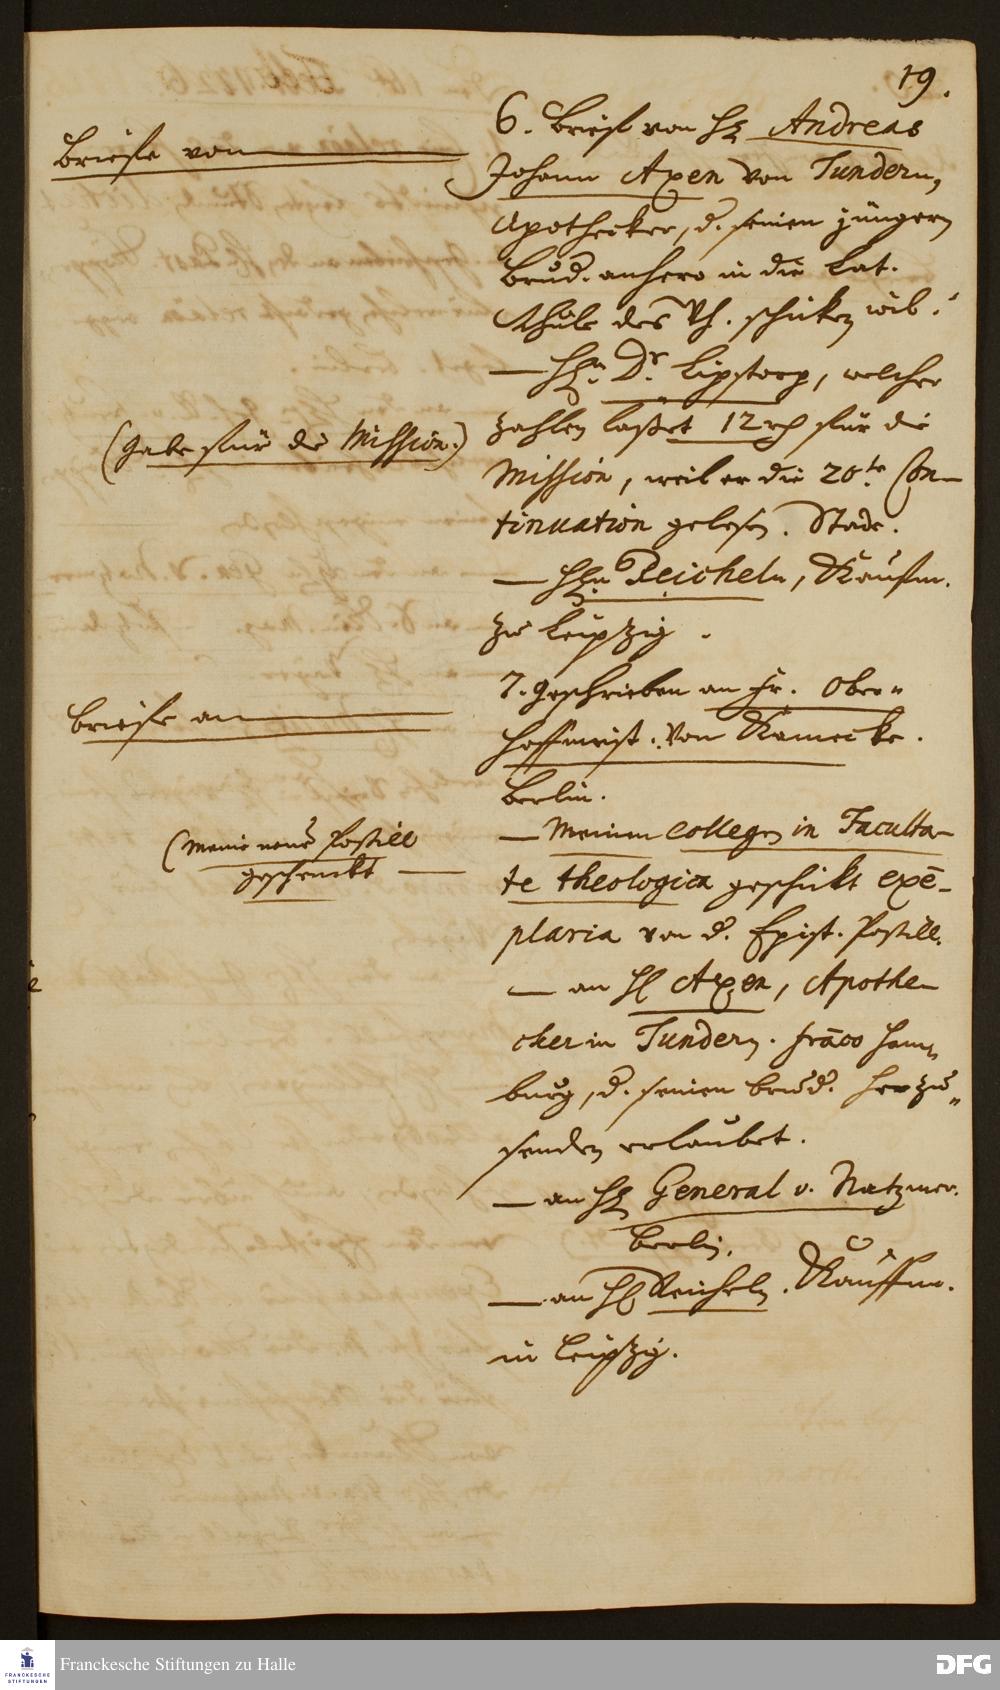 19.
Briefe von
6. Brief von H. Andreas
Johann Axen von Tundern,
Apothecker, d. seinen jüngern
Brud. anhero in die Lat.
Schule des Wh. schicken will.
— H. Dr. Lipstorp, welcher
zahlen laßet 12 rth für die
(Gabe für die Mission.)
Mission, weil er die 20te Con-
tinuation gelesen. Stade.
— Hn Reicheln, Kaufm.
zu Leipzig.
Briefe an
7. Geschrieben an Fr. Ober-
hoffmeist. von Kamecke.
Berlin.
(Meine neue Postill
geschenckt —
— Meinen Collegen in Faculta-
te theologica geschickt exē-
plaria von d. Epist. Postill.
— an H Axen, Apothe-
cker in Tundern. frāco Ham-
burg, d. seinen Brud. herzu-
senden erlaubet.
— an H General v. Natzmer.
Berlin.
— an H Reicheln. Kauffm.
in Leipzig.
Franckesche Stiftungen zu Halle
FRANCKESCHE
STIFTUNGEN
DFG